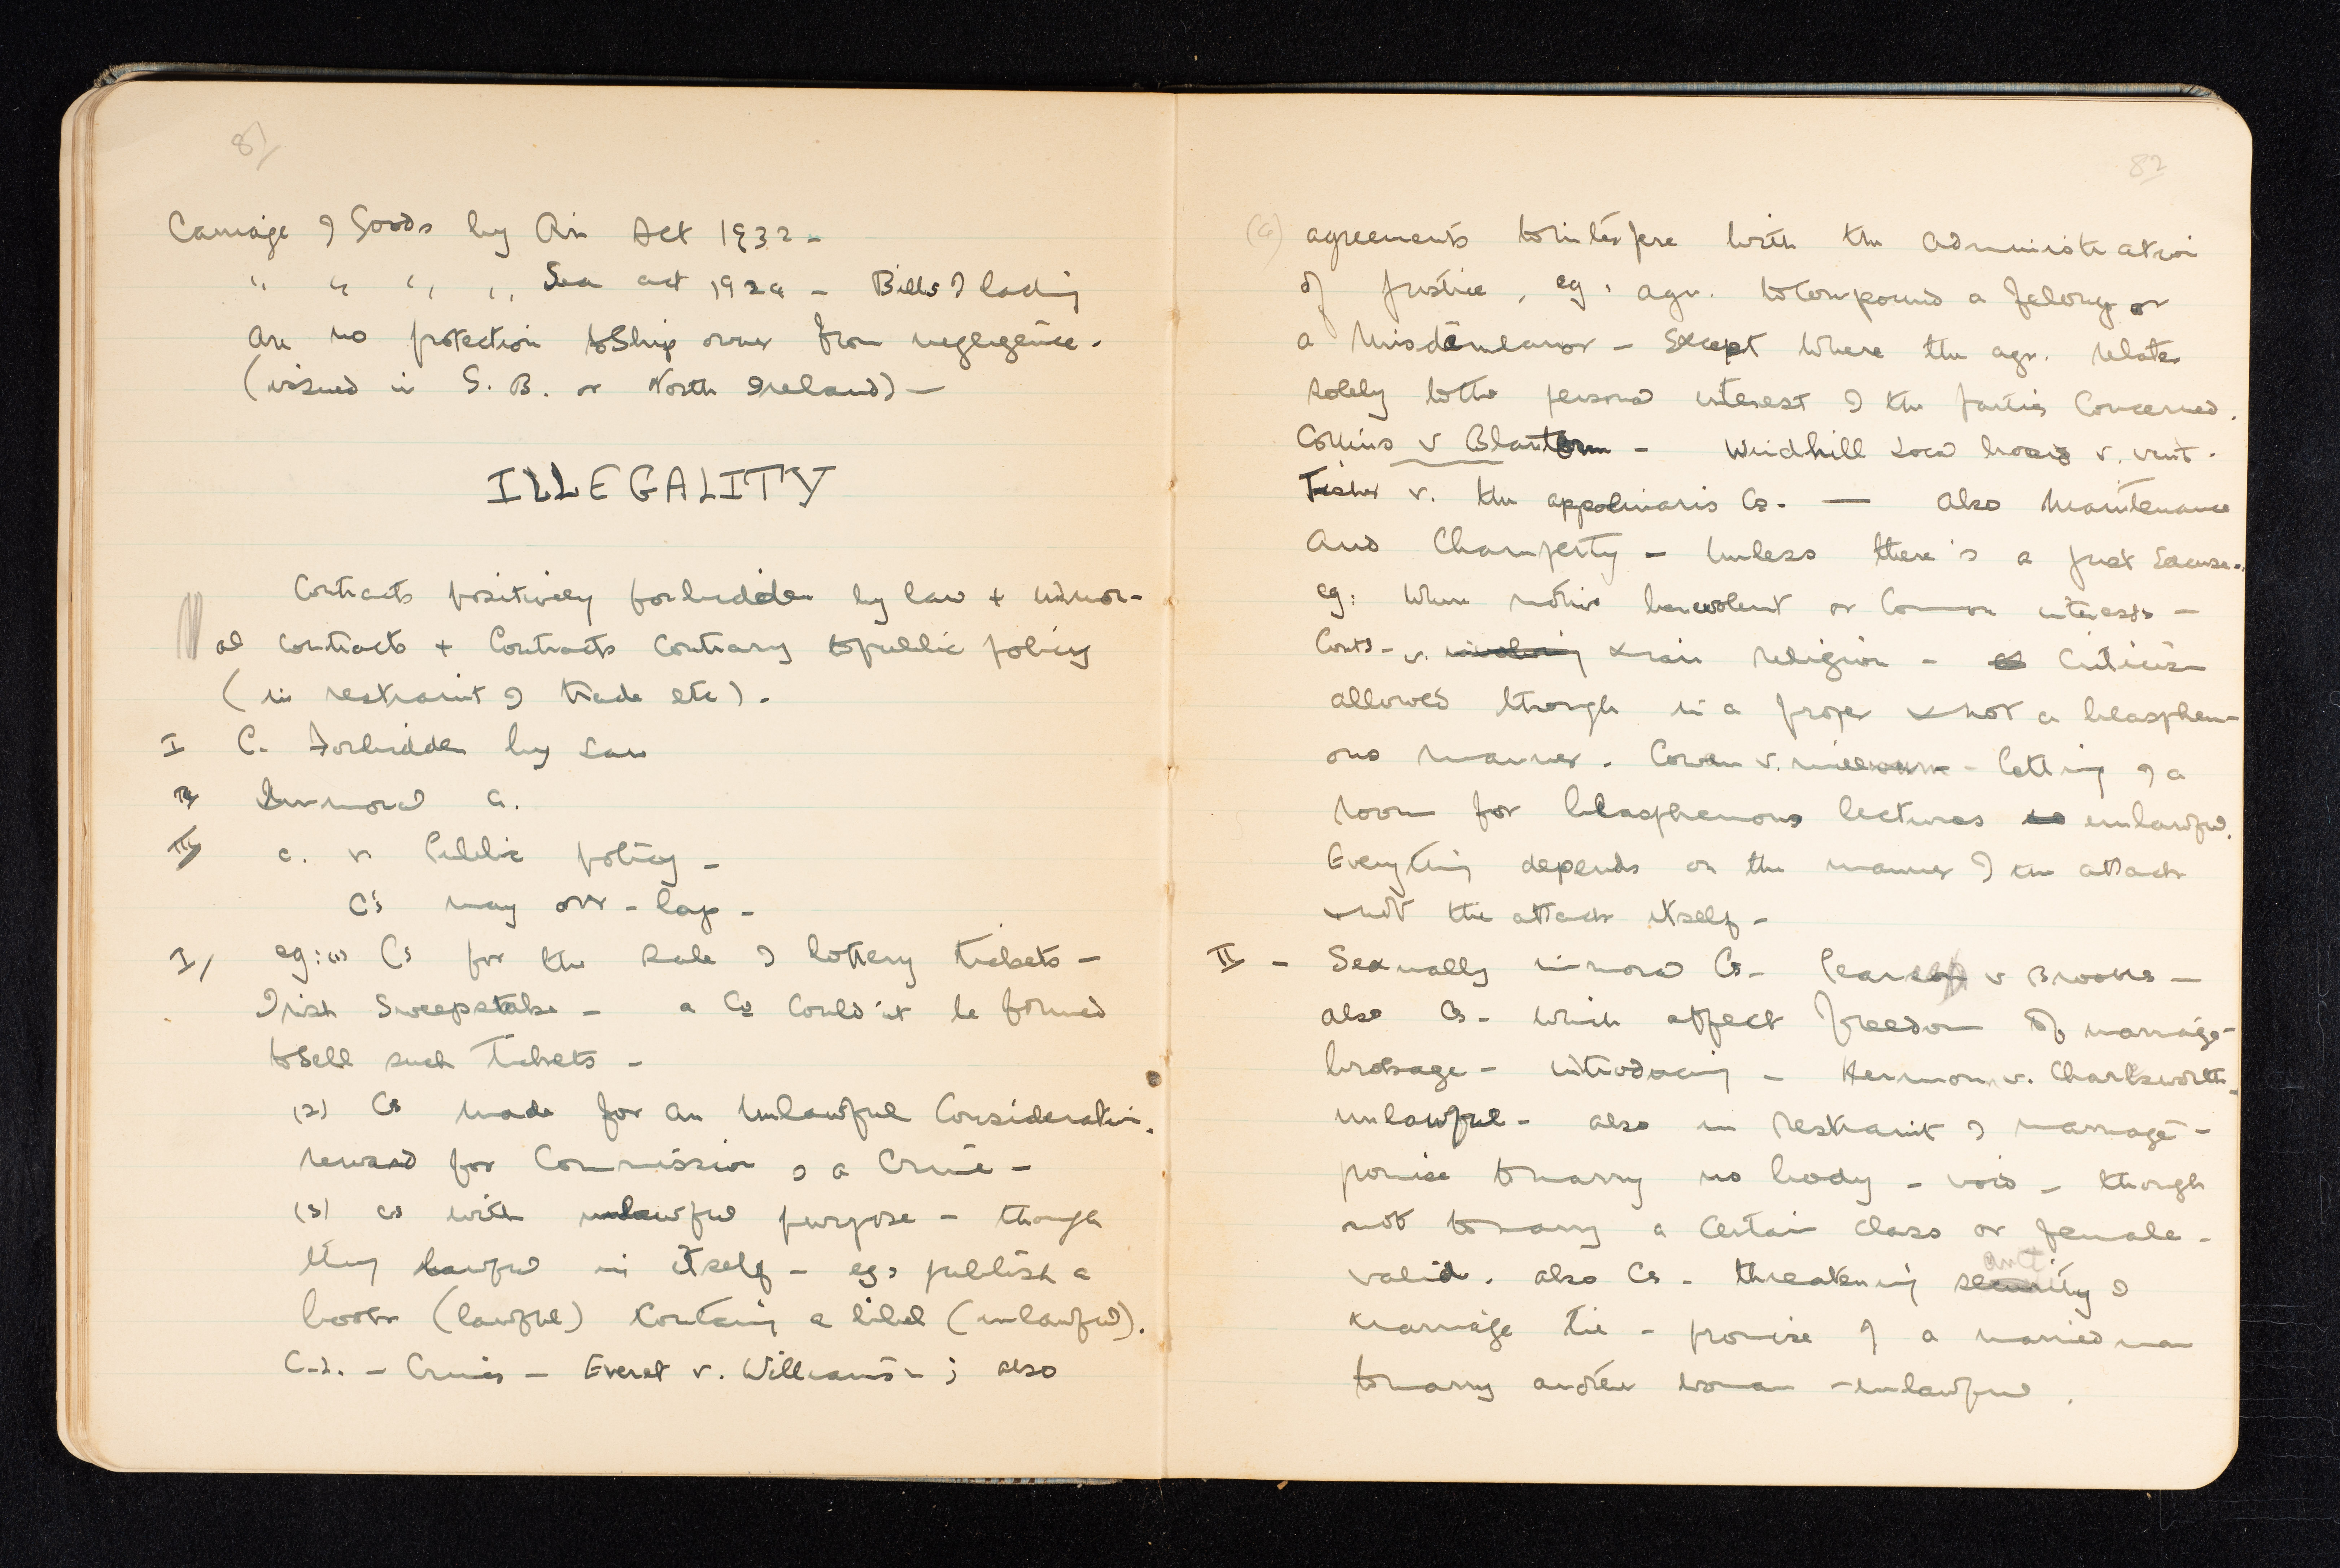 81
Carriage of Goods by Air Act 1932 -
" " " " Sea act 1924 - Bills of lading
are no protection to Ship owner from negligence.
(issued in G. B. or North Ireland) -
ILLEGALITY
Contracts positively forbidden by law + immor-
al contracts + Contracts Contrary to public policy
(in restraint of trade etc).
I C. Forbidden by Law
II Immoral C.
III c. v Public policy -
C's may over-lap -
I/ eg: (1) Cs for the Sale of lottery tickets -
Irish Sweepstake - a Co Could'nt be formed
to Sell such Tickets -
(2) Cs made for an Unlawful Consideration.
reward for Commission of a Crime -
(3) cs with unlawful purpose - though
they lawful in itself - eg, publish a
book (lawful) Containing a libel (unlawful).
- Crimes - Everet v. Williams - ; also
82
(4) agreements to interfere with the administration
of Justice, eg, agr. to Compound a felony or
a Misdemeanor - Except where the agr. relates
solely to the personal interest of the parties Concerned.
Collins v Blantern - Windhill Local board v. vint.
Fisher v. the appolinaris Co. - also Maintenance
and Champerty - Unless there's a just Excuse.
eg: When motive benevolent or Common interests -
Conts - v. Xrian religion - Criticism
allowed though in a proper & not a blasphem-
ous manner. Cowen v. milbourn - letting of a
room for blasphemous lectures unlawful.
Everything depends on the manner of the attack
& not the attack itself -
II - Sexually immoral Cs - Pearce v Brooks -
also Cs - which affect freedom of marriage -
brokage - introducing - Hermon v. Charlesworth -
unlawful - also in restraint of marriage -
pomise to marry no body - void - though
not to marry a Certain class or female -
valid. also Cs - threatening security of
marriage tie - promise of a married man
to marry another woman - unlawful.